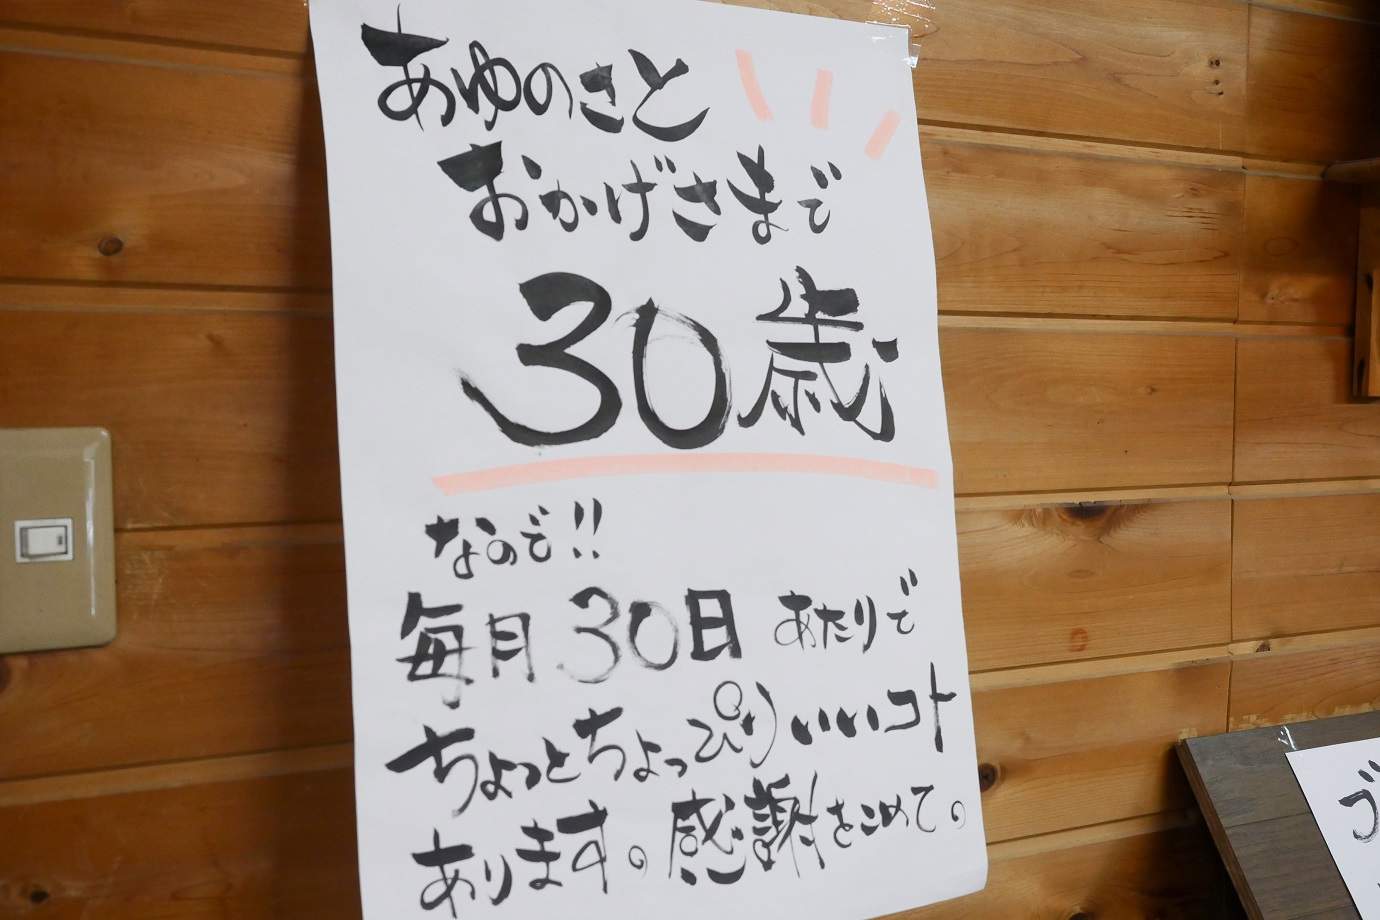 あゆのさと
おかげさまで
30歳
なので!!
毎月30日あたりで
ちょっとちょっぴりいいコト
あります。感謝をこめて。